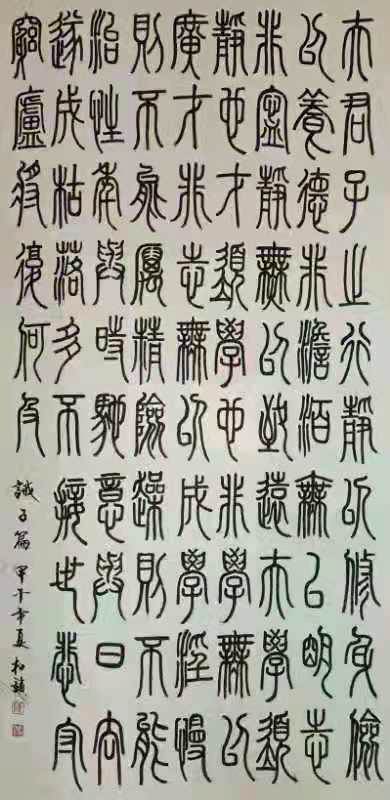 夫君子之行靜以修身儉
以養德非澹泊無以明志
非寧靜無以致遠夫學須
靜也才須學也非學無以
廣才非志無以成學淫慢
則不能厲精險躁則不能
治性年與時馳意與日去
遂成枯落多不接世悲守
窮廬將復何及
誡子篇 甲午年夏